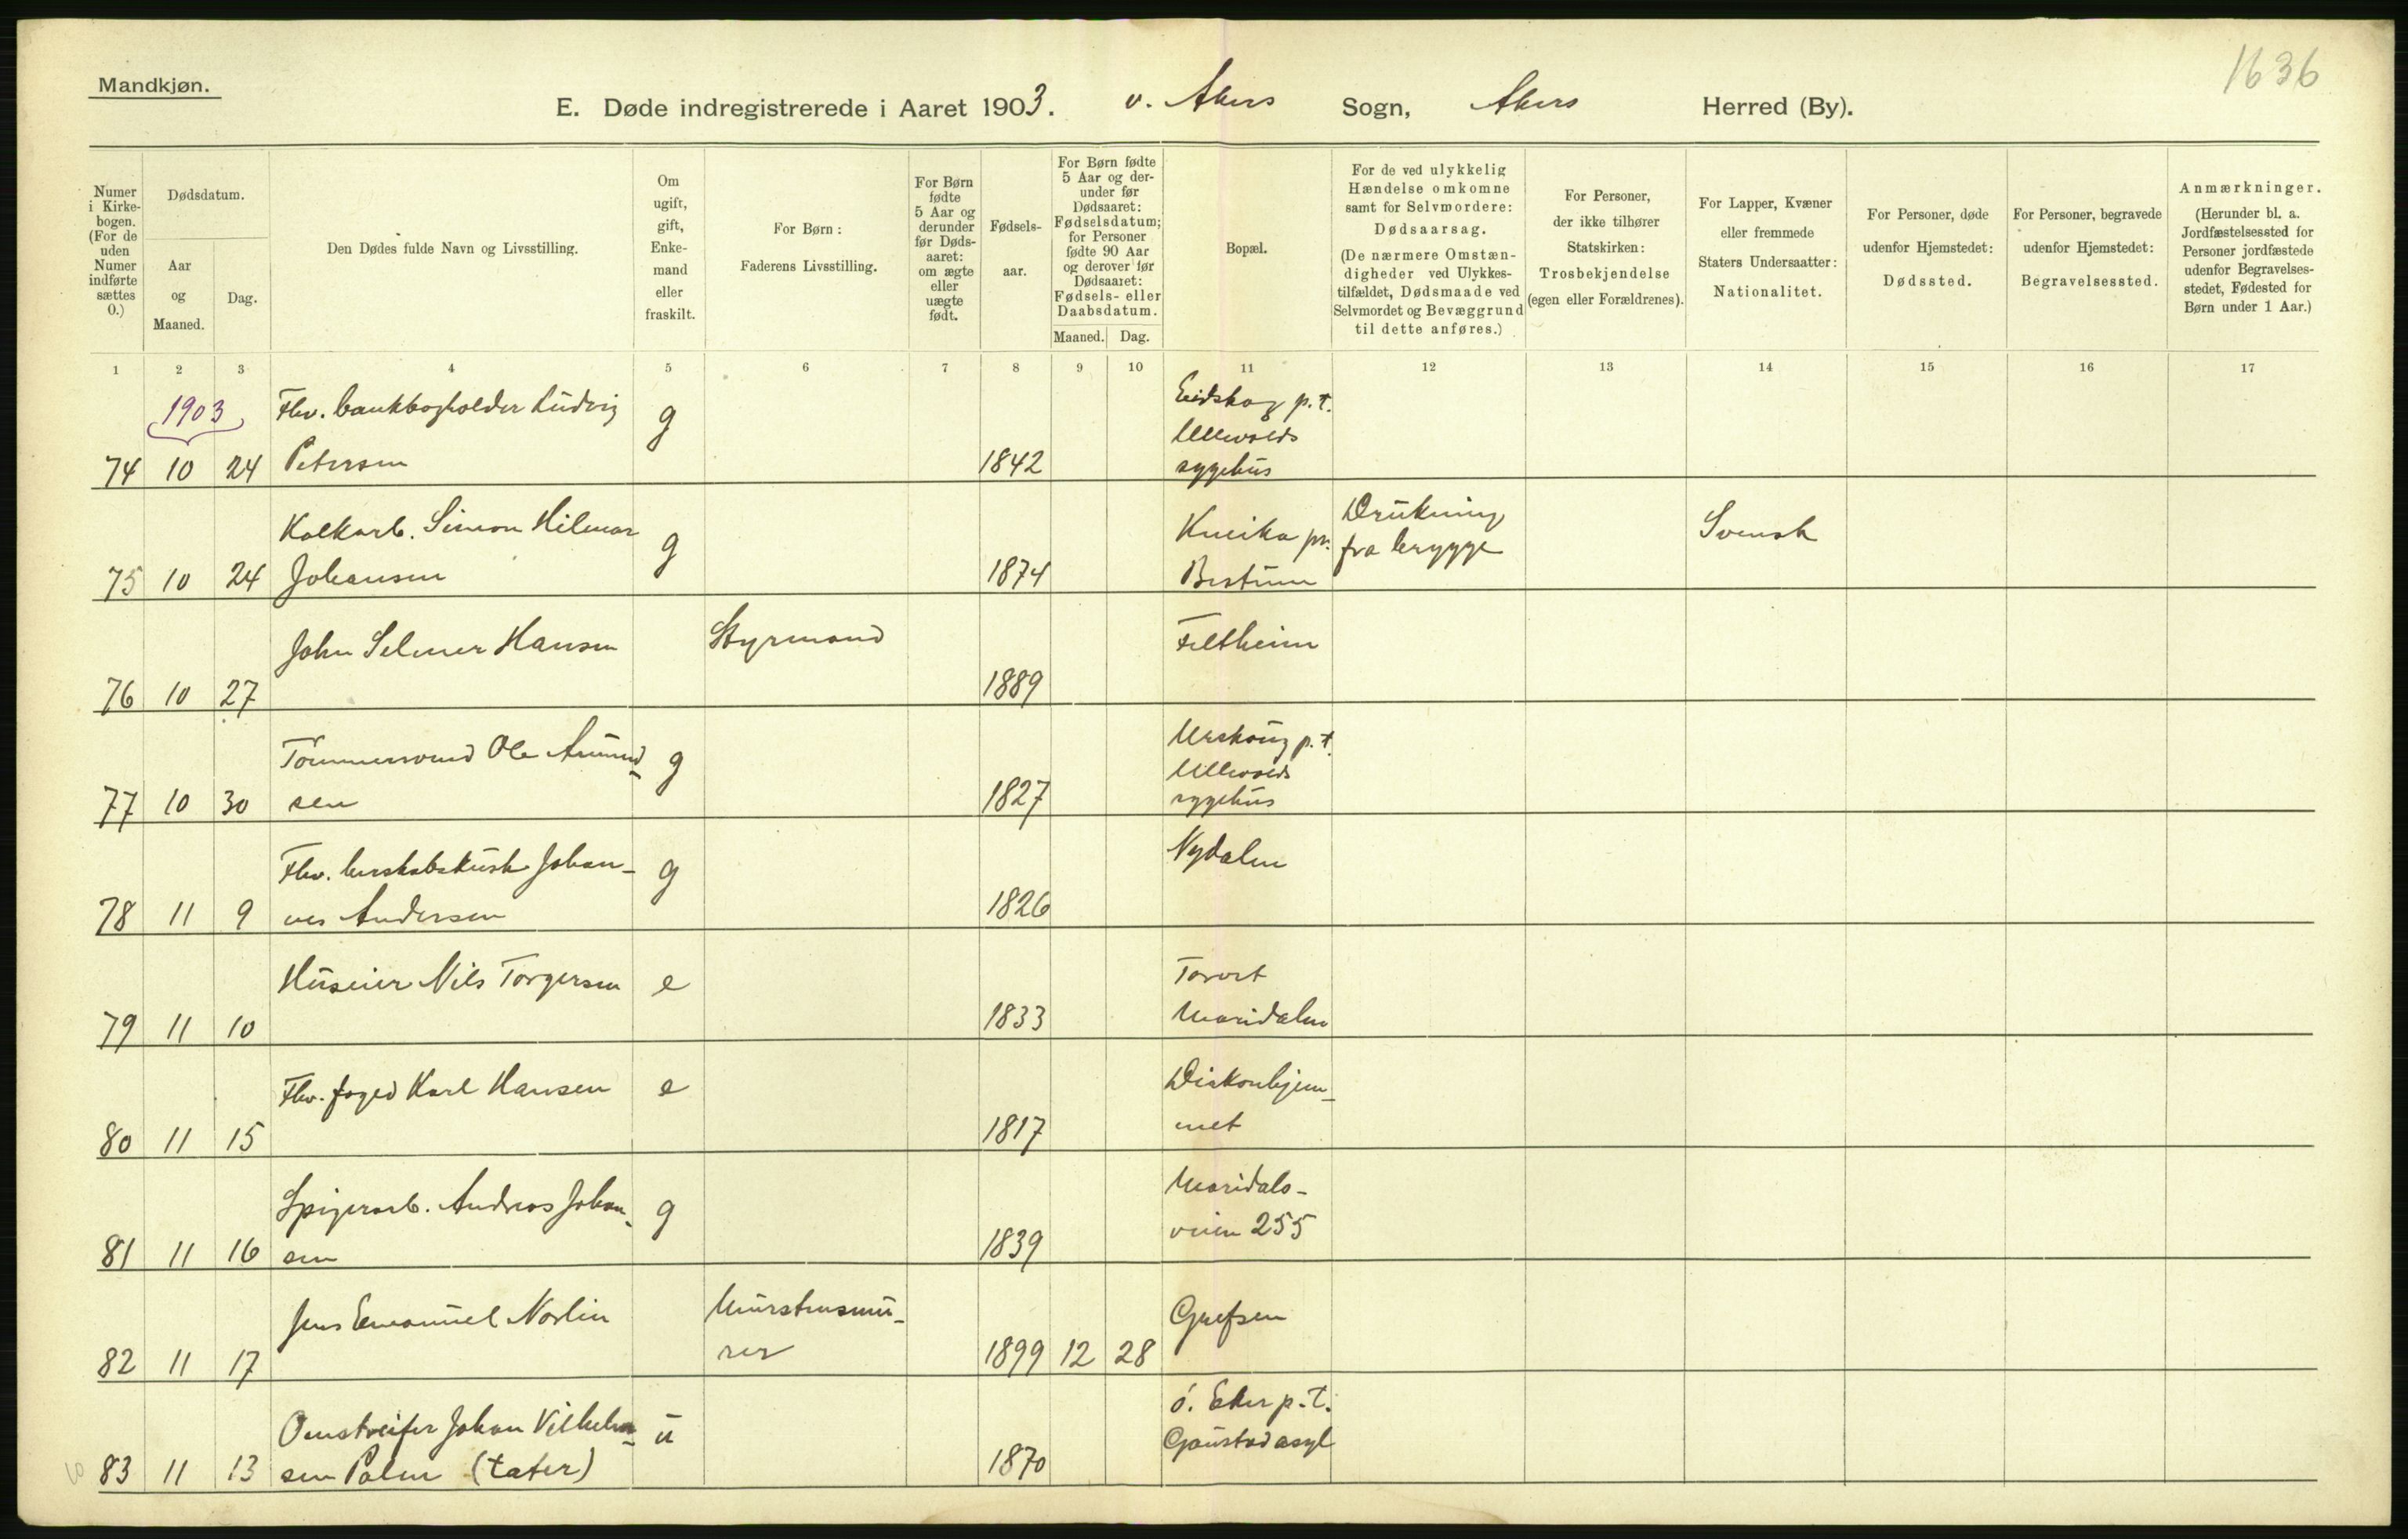 1636
Mandkjøn.
E. Døde indregistrerede i Aaret 1903. v. Akers Sogn, Akers Herred (By).
Numer i Kirkebogen. (For de uden Numer indførte sættes 0.)
Dødsdatum.
Aar og Maaned.
Dag.
Den Dødes fulde Navn og Livsstilling.
Om ugift, gift, Enkemand eller fraskilt.
For Børn:
Faderens Livsstilling.
For Børn fødte 5 Aar og derunder før Dødsaaret: om ægte eller uægte født.
Fødselsaar.
For Børn fødte 5 Aar og derunder før Dødsaaret: Fødselsdatum; for Personer fødte 90 Aar og derover før Dødsaaret: Fødsels- eller Daabsdatum.
Maaned. Dag.
Bopæl.
For de ved ulykkelig Hændelse omkomne samt for Selvmordere: Dødsaarsag.
(De nærmere Omstændigheder ved Ulykkestilfældet, Dødsmaade ved Selvmordet og Bevæggrund til dette anføres.)
For Personer, der ikke tilhører Statskirken: Trosbekjendelse (egen eller Forældrenes).
For Lapper, Kvæner eller fremmede Staters Undersaatter: Nationalitet.
For Personer, døde udenfor Hjemstedet: Dødssted.
For Personer, begravede udenfor Hjemstedet: Begravelsessted.
Anmærkninger.
(Herunder bl. a. Jordfæstelsessted for Personer jordfæstede udenfor Begravelsesstedet, Fødested for Børn under 1 Aar.)
1 2 3 4 5 6 7 8 9 10 11 12 13 14 15 16 17
1903
Fhv. bankbogholder Ludvig g Eidskog p.t.
Ullevolds
74 10 24 Petersen 1842 sygehus
Kalkarb. Simon Hilmar g Kneika pr. Drukning Svensk
fra brygge
75 10 24 Johansen 1874 Bestum
John Selmer Hansen Styrmand Feltheim
76 10 27 1889
Tømmermand Ole Amund- g Urskoug p.t.
Ullevolds
77 10 30 sen 1827 sygehus
Fhv. herskabskusk Johan- g Nydalen
78 11 9 nes Andersen 1826
Huseier Nils Torgersen e
79 11 10 1833 Maridalen
Fhv. foged Karl Hansen e Diakonhjem-
80 11 15 1817 met
Spigerarb. Andreas Johan- g Maridals-
veien 255
81 11 16 sen 1839
Jens Emanuel Norlin Murstensmu- Grefsen
82 11 17 rer 1899 12 28
Omstreifer Johan Vilhelm- u ø. Eker p.t.
Gaustad asyl
83 11 13 sen Palm (tater) 1870